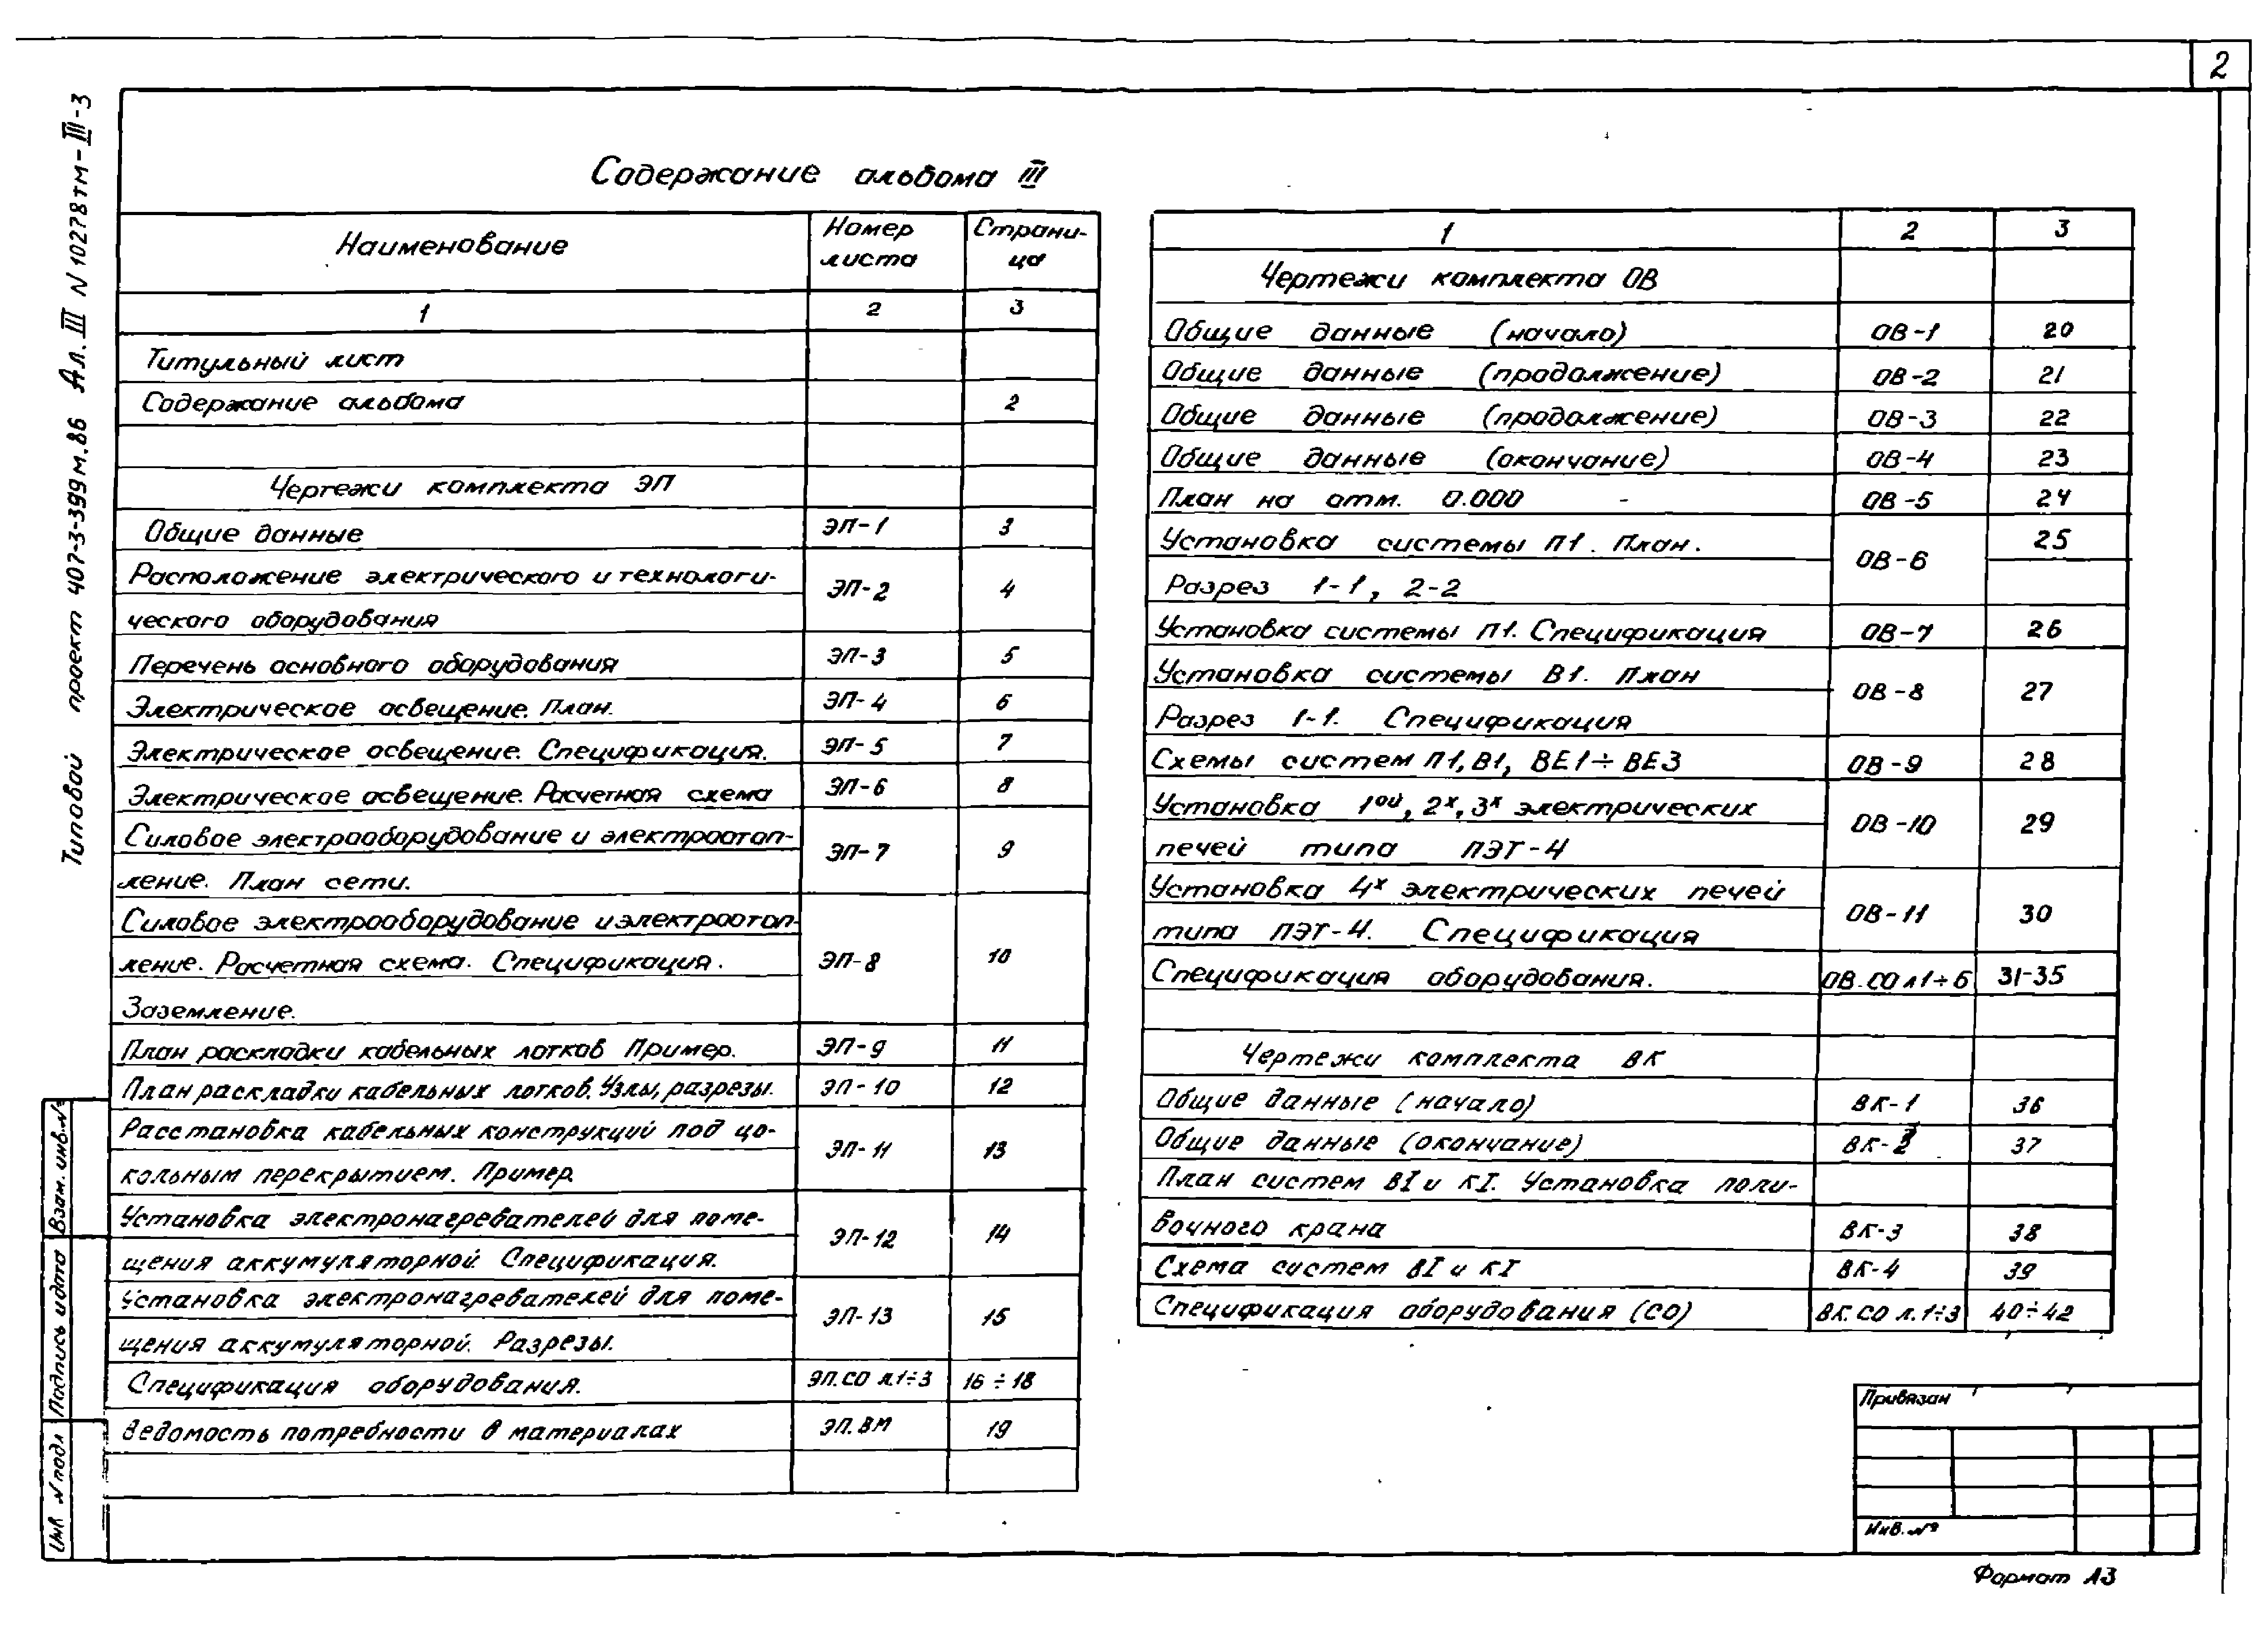 2
Типовой проект 407-3-399м.86 Ал. III N 10278тм-III-3
Содержание альбома III
Наименование
Номер листа
Страни-
ца
1 2 3
Титульный лист
Содержание альбома 2
Чертежи комплекта ЭП
Общие данные ЭП-1 3
Расположение электрического и технологи-
ческого оборудования ЭП-2 4
Перечень основного оборудования ЭП-3 5
Электрическое освещение. План. ЭП-4 6
Электрическое освещение. Спецификация. ЭП-5 7
Электрическое освещение. Расчетная схема ЭП-6 8
Силовое электрооборудование и электроотоп-
ление. План сети. ЭП-7 9
Силовое электрооборудование и электроотоп-
ление. Расчетная схема. Спецификация. ЭП-8 10
Заземление.
План раскладки кабельных лотков Пример. ЭП-9 11
План раскладки кабельных лотков. Узлы, разрезы. ЭП-10 12
Расстановка кабельных конструкций под цо-
кольным перекрытием. Пример. ЭП-11 13
Установка электронагревателей для поме-
щения аккумуляторной. Спецификация. ЭП-12 14
Установка электронагревателей для поме-
щения аккумуляторной. Разрезы. ЭП-13 15
Спецификация оборудования. ЭП.СО л.1÷3 16÷18
Ведомость потребности в материалах ЭП.ВМ 19
1 2 3
Чертежи комплекта ОВ
Общие данные (начало) ОВ-1 20
Общие данные (продолжение) ОВ-2 21
Общие данные (продолжение) ОВ-3 22
Общие данные (окончание) ОВ-4 23
План на отм. 0.000 - ОВ-5 24
Установка системы П1. План. ОВ-6 25
Разрез 1-1, 2-2
Установка системы П1. Спецификация ОВ-7 26
Установка системы В1. План
Разрез 1-1. Спецификация ОВ-8 27
Схемы систем П1, В1, ВЕ1÷ВЕ3 ОВ-9 28
Установка 1ой, 2х, 3х электрических
печей типа ПЭТ-4 ОВ-10 29
Установка 4х электрических печей
типа ПЭТ-4. Спецификация ОВ-11 30
Спецификация оборудования. ОВ.СО л1÷6 31-35
Чертежи комплекта ВК
Общие данные (начало) ВК-1 36
Общие данные (окончание) ВК-2 37
План систем ВI и КI. Установка поли-
вочного крана ВК-3 38
Схема систем ВI и КI ВК-4 39
Спецификация оборудования (СО) ВК.СО л.1÷3 40÷42
Взам. инв. №
Подпись и дата
Инв N подл
Привязан
Инв. №
Формат А3